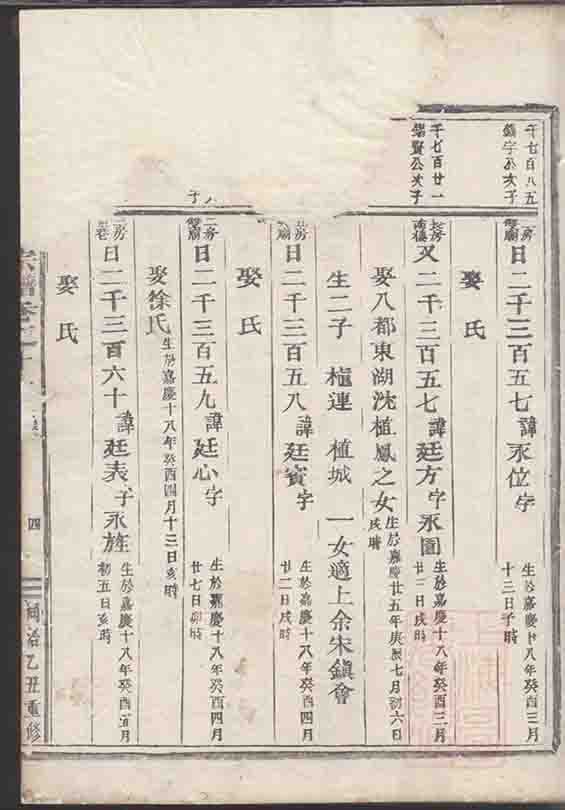 千七百八五
鎮宇公次子
二房
曰二千三百五七諱永位字
生於嘉慶十八年癸酉三月
十三日子時
娶氏
千七百廿一
公次子
又二千三百五七諱廷方字永圖
生於嘉慶十八年癸酉三月
廿三日戌時
娶八都東湖沈植鳳之女
生於嘉慶廿五年庚辰七月初六日
戌時
生二子 植連 植城 一女適上余宋鎮會
曰二千三百五八諱廷賓字
生於嘉慶十八年癸酉四月
廿二日戌時
娶氏
二房
曰二千三百五九諱廷心字
生於嘉慶十八年癸酉四月
廿七日卯時
娶徐氏
生於嘉慶十八年癸酉四月十三日亥時
房
曰二千三百六十諱廷表子永旌
生於嘉慶十八年癸酉五月
初五日亥時
娶氏
宗譜卷之十
四
同治乙丑重修